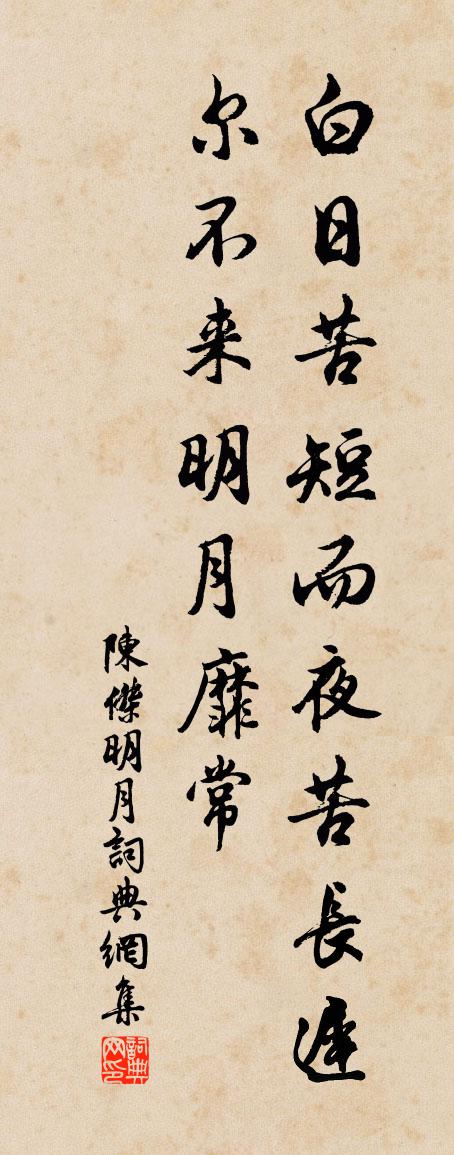 白日苦短而夜苦長遲
尔不来明月靡常
陳傑明月詞典網集
詞典网印